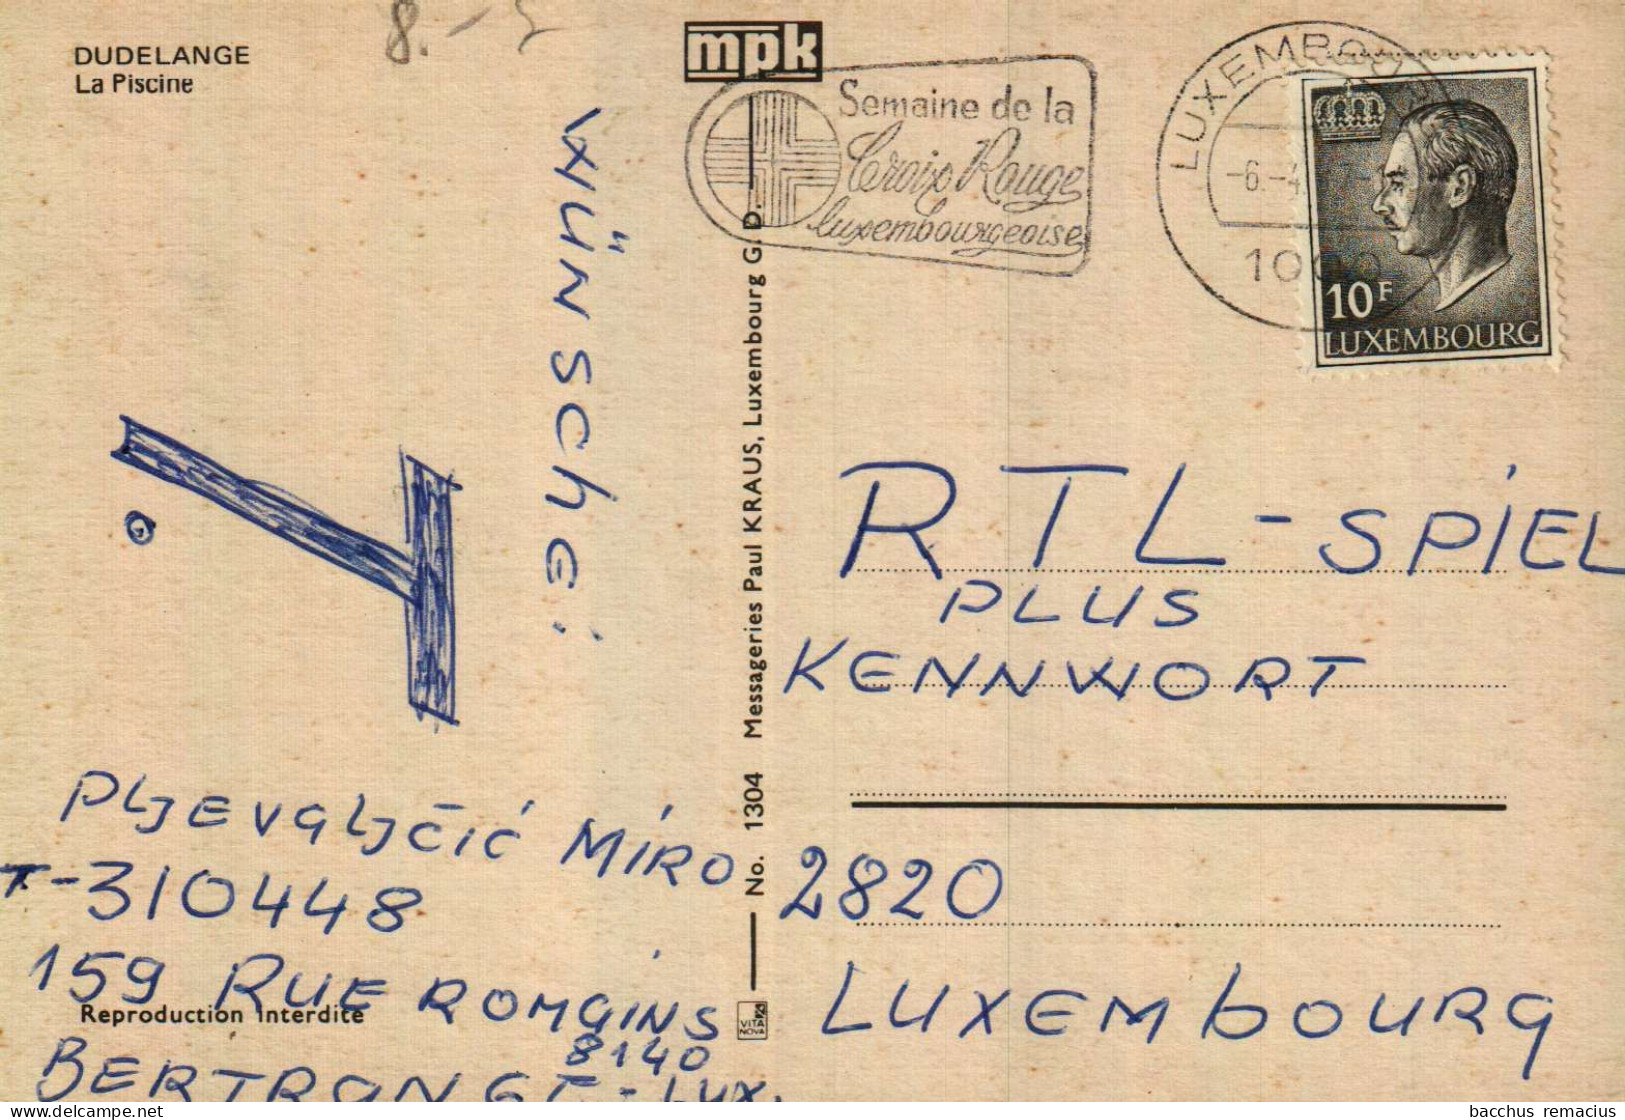 DUDELANGE
La Piscine
8.-
mpk
Semaine de la
Croix Rouge
luxembourgeoise
LUXEMBOURG
-6.-4.
1000
10F
LUXEMBOURG
WÜNSCHE:
No. 1304 Messageries Paul KRAUS, Luxembourg G. D.
RTL-SPIEL
PLUS
KENNWORT
2820
LUXEMbOURG
PLJEVALJČIĆ MIRO
T-310448
159 RUE ROMAINS
8140
BERTRANGE-LUX.
Reproduction Interdite
VITA
NOVA
bacchus remacius
delcampe.net